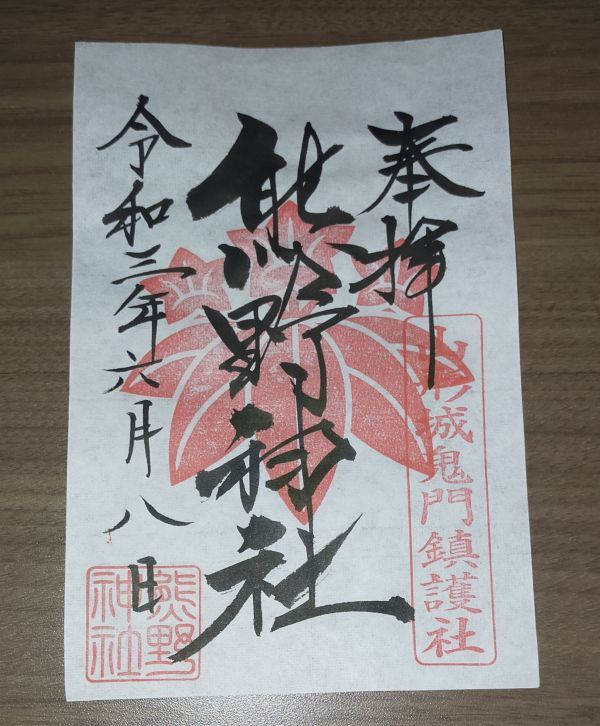 奉拝
山形城鬼門鎮護社
熊野神社
令和三年六月八日
熊野
神社